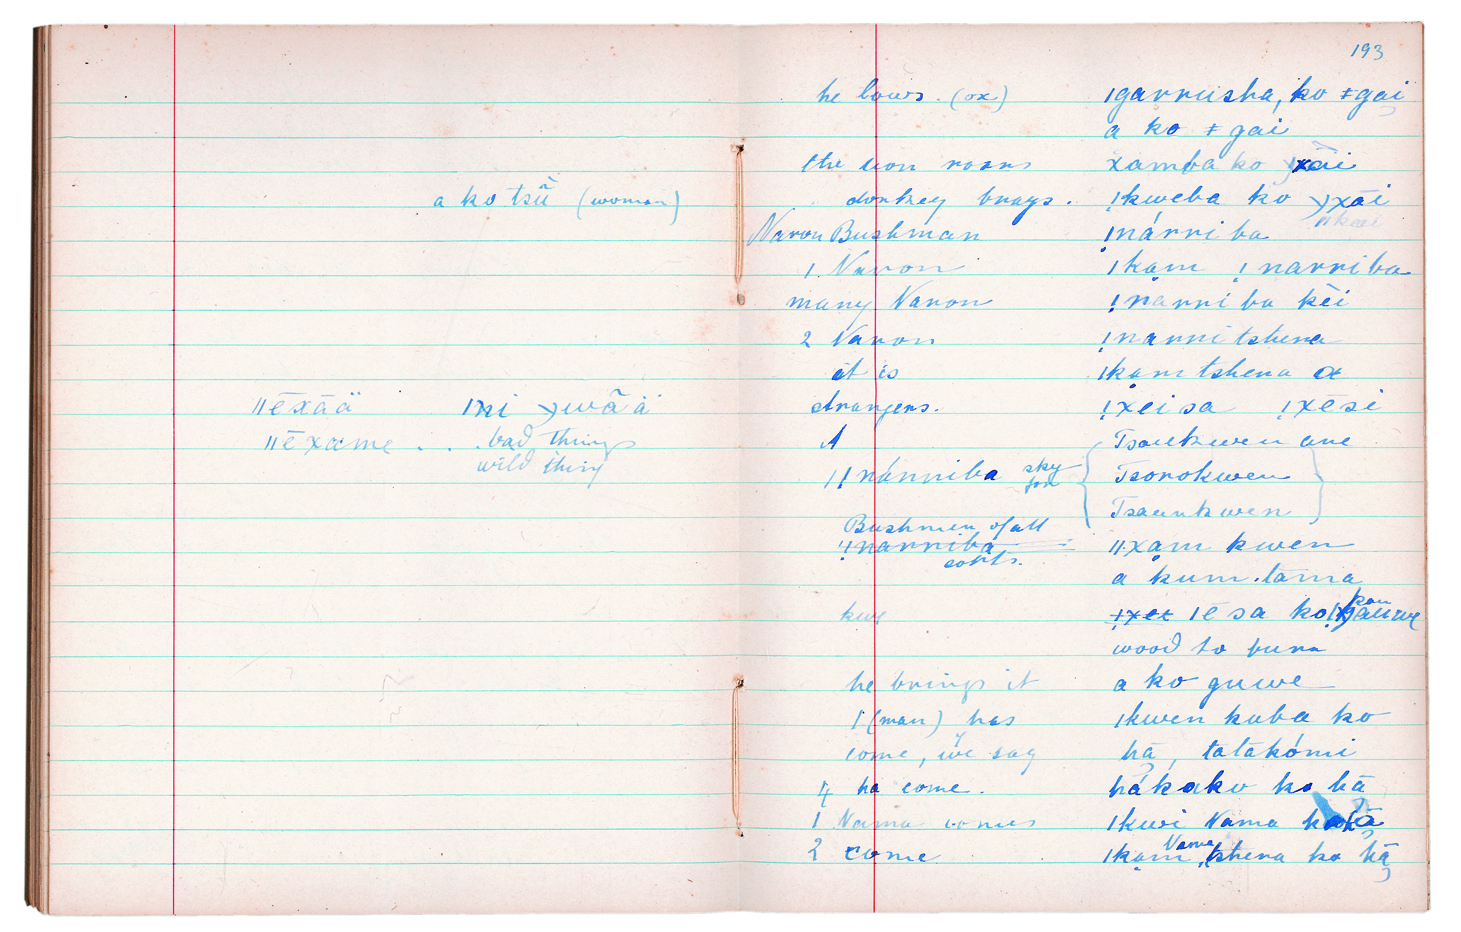 a ko tsũ (woman)
||ēxāä |ni ywãä
||ēxame . . . bad things
wild thing
193
he lows. (ox) |garrusha, ko ǂgai
a ko ǂgai
the lion roars xamba ko xāi
donkey brays. !kweba ko yxāi
||kai
Naron Bushman !nárriba
1 Naron |kam !narriba
many Naron !narriba kēi
2 Naron !narritshera
it is |kamtshera a
strangers. !xeisa !xēsi
A Tsaukwen are
||nánniba sky Tsorokwen
for
Tsaunkwen
Bushmen of all
||narriba ||xam kwen
sorts.
a kum.tama
kwe !xei |ēsa ko
wood to burn
he brings it a ko guwe
1 (man) has |kwen kuba ko
come, we say hā, tatakómi
4 ha come. hákako ko hā
1 Nama comes |kwi Nama ko hā
Nama
2 come |kam tshera ko hā